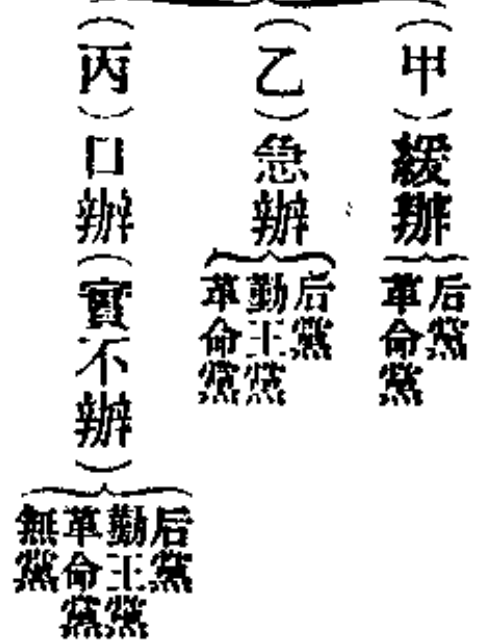 (甲)緩辦
后黨
革命黨
(乙)急辦
后黨
勤王黨
革命黨
(丙)口辦(實不辦)
后黨
勤王黨
革命黨
無黨